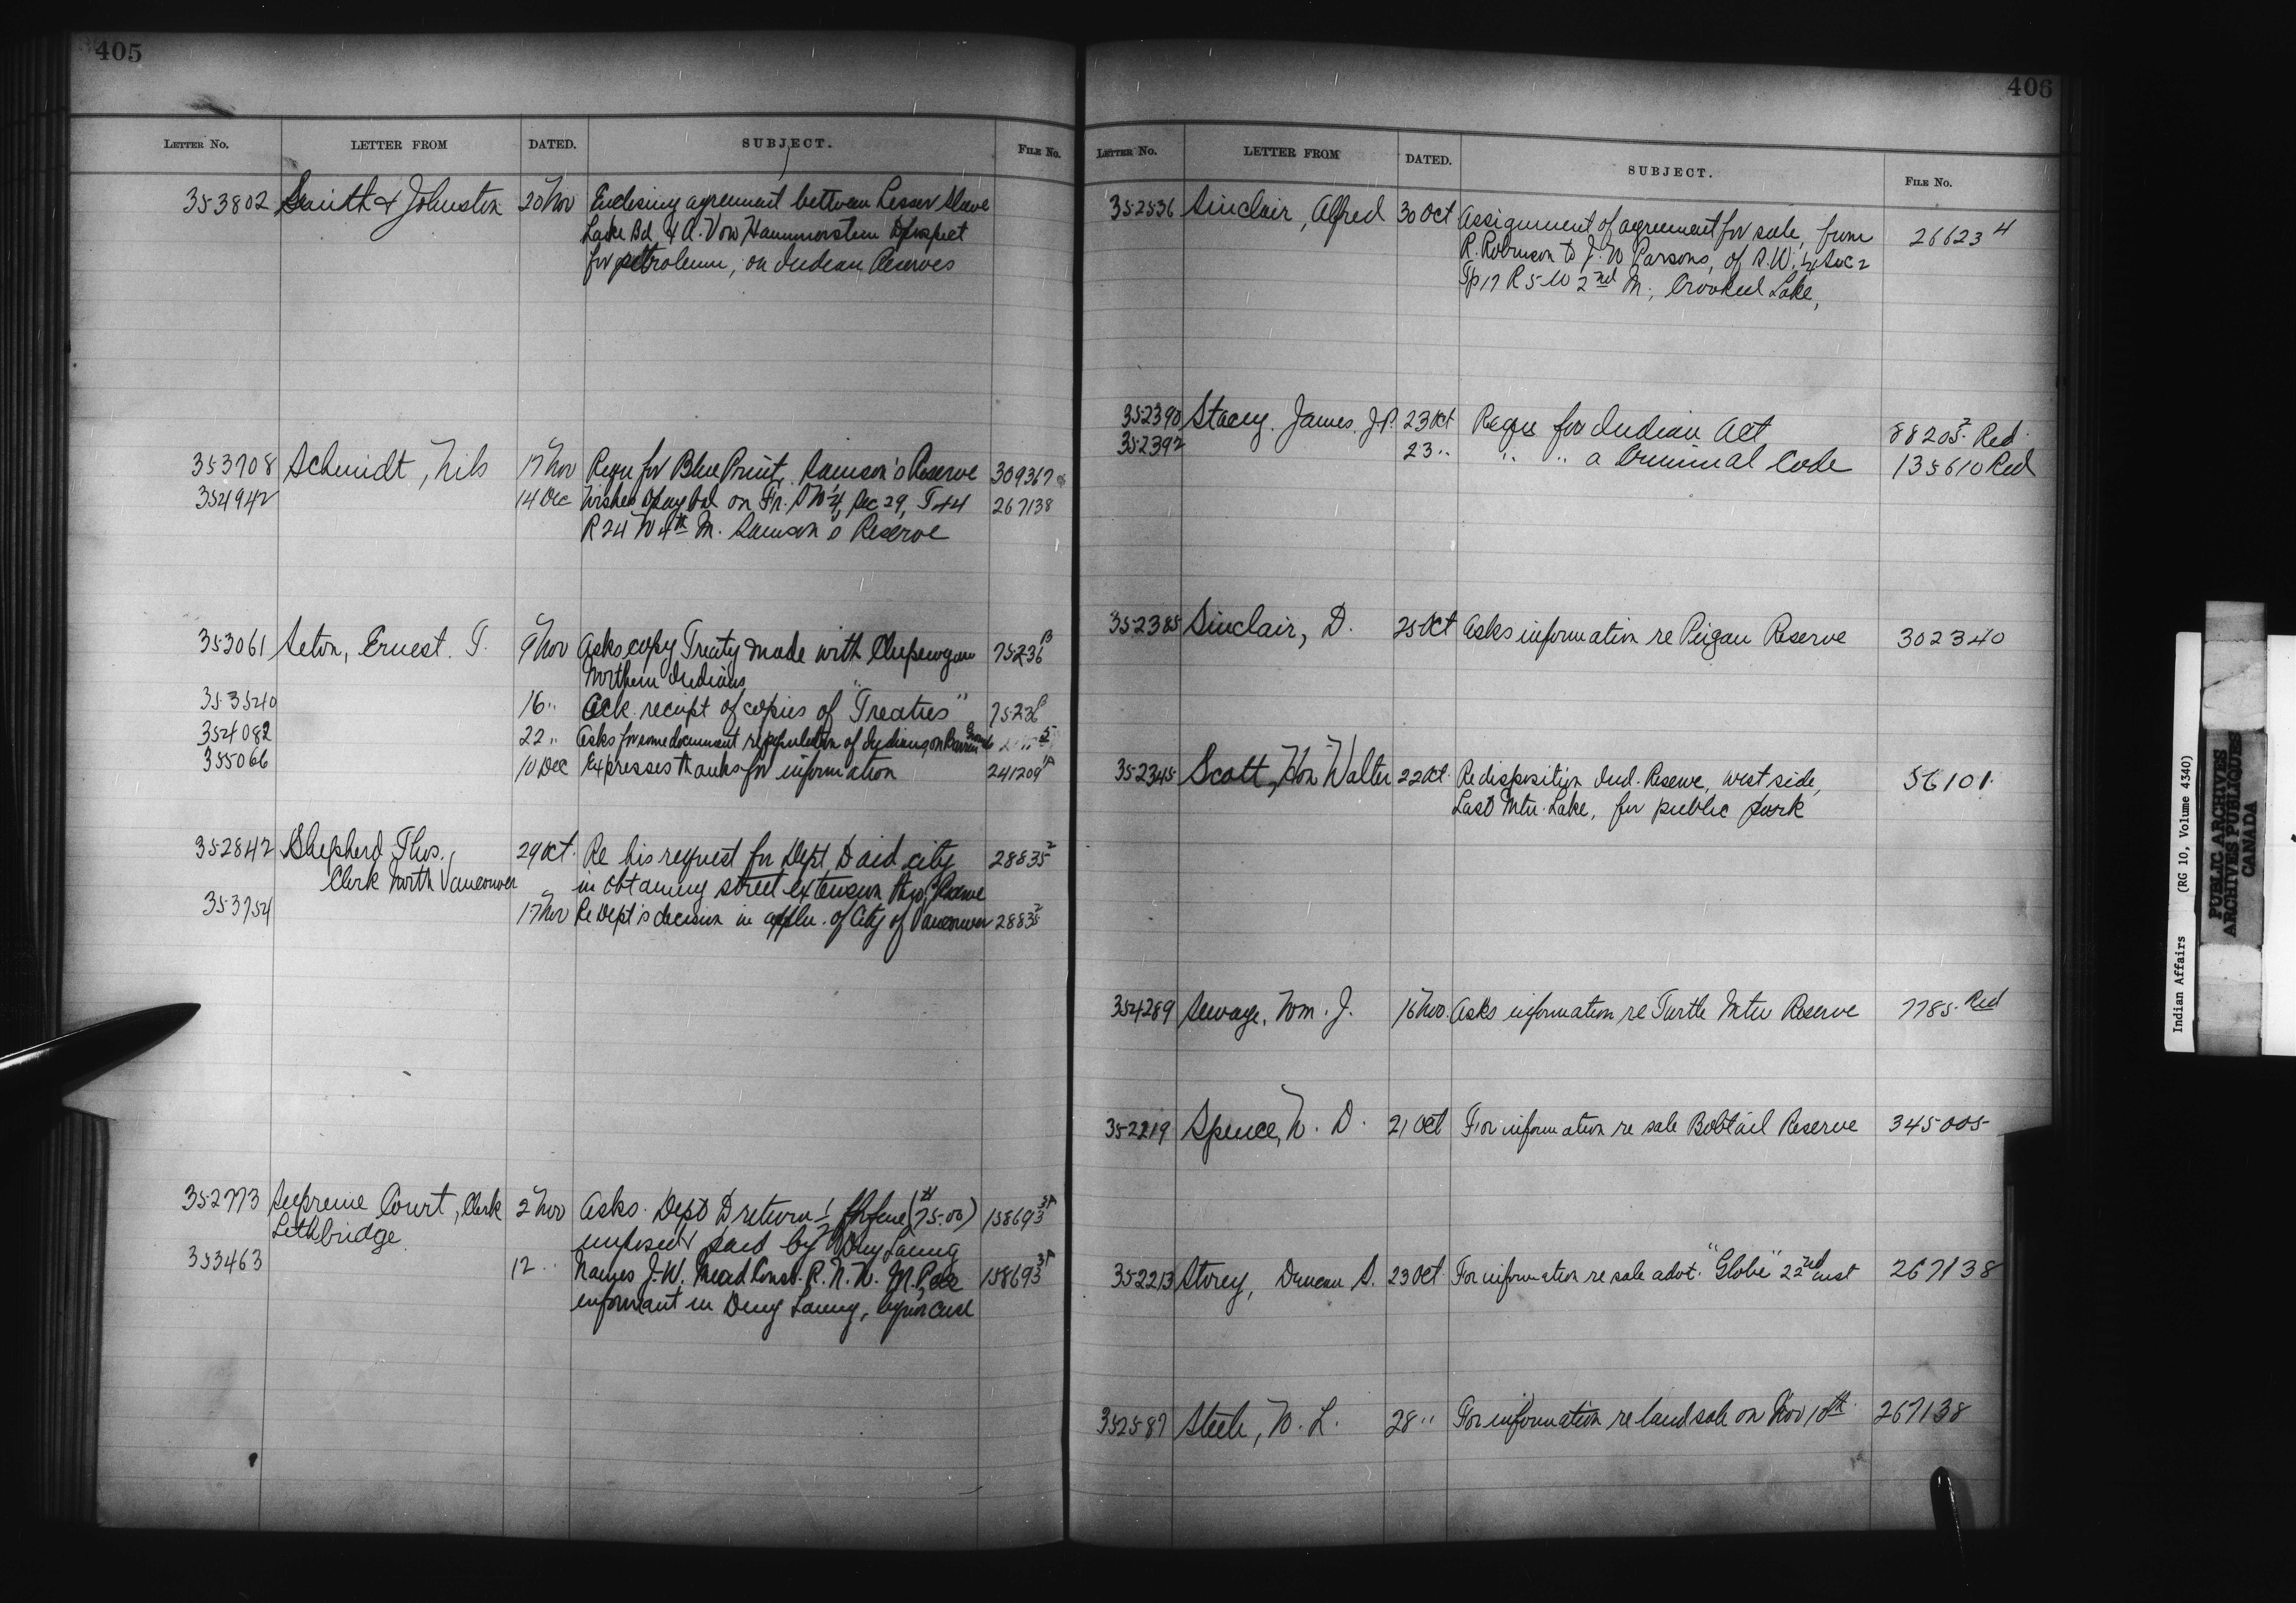 405
LETTER NO. LETTER FROM DATED. SUBJECT. FILE NO.
353802 Smith & Johnston 20 Nov Enclosing agreement between Lesser Slave
Lake Bd & A. Von Hammerstein to prospect
for petroleum, on Indian Reserves
353708 Schmidt, Nils 17 Nov Requ for Blue Print, Samson's Reserve 309367
354942 14 Dec Wishes to pay bal on Fr. SW¼, Sec 29, T 44 267138
R 24 W 4th M. Samson's Reserve
353061 Seton, Ernest. T. 9 Nov Asks copy Treaty made with Chipewyan 75236
Northern Indians
353540 16 " Ack receipt of copies of "Treaties" 75236
354082 22 " Asks for some document re population of Indians on Barren Grounds
355066 10 Dec Expresses thanks for information 241209
352842 Shepherd Thos. 29 Oct. Re his request for Dept to aid city 28835²
Clerk North Vancouver in obtaining street extension thro' Reserve
353754 17 Nov Re Dept's decision in appln. of City of Vancouver 28835²
352773 Supreme Court, Clerk 2 Nov Asks Dept to return fine ($75.00) 158693
Lethbridge imposed & paid by
353463 12 " Names J. W. Mead Const. R. N. W. M. P. as 158693
informant in liquor case
406
LETTER NO. LETTER FROM DATED. SUBJECT. FILE NO.
352536 Sinclair, Alfred 30 Oct Assignment of agreement for sale, from 26623 4
R. Robinson to J. W Parsons, of S.W. ¼ Sec 2
Tp 17 R 5 W 2nd M., Crooked Lake,
352390 Stacey, James J.P. 23 Oct Requ for Indian Act 88205² Red
352392 23 " " " a Criminal Code 135610 Red
352385 Sinclair, D. 25 Oct Asks information re Peigan Reserve 302340
352345 Scott, Hon Walter 22 Oct. Re disposition Ind. Reserve, west side, 56101
Last Mtn. Lake, for public park
354289 Sewage, Wm. J. 16 Nov. Asks information re Turtle Mtn Reserve 7785 Red
352219 Spence, N. D. 21 Oct For information re sale Bobtail Reserve 345005
352213 Storey, Duncan S. 23 Oct For information re sale advt. "Globe" 22nd inst 267138
352587 Steele, W. L. 28 " For information re land sale on Nov 10th 267138
Indian Affairs (RG 10, Volume 4340)
PUBLIC ARCHIVES
ARCHIVES PUBLIQUES
CANADA